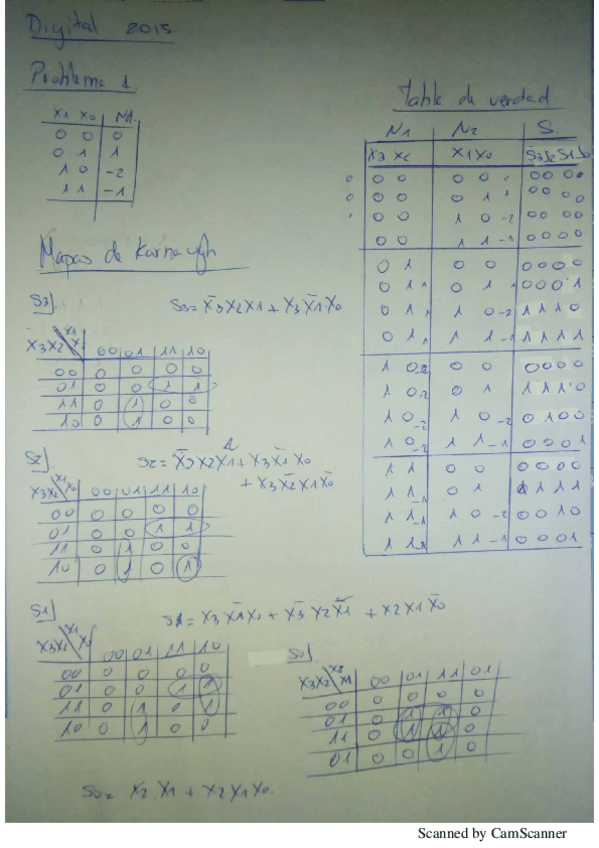 Digital 2015
Problema 1.
X1 X0 | N1
0 0 | 0
0 1 | 1
1 0 | -2
1 1 | -1
Tabla de verdad
N1 | N2 | S
X3 X2 | X1 X0 | S3 S2 S1 S0
0 0 | 0 0 | 0 0 0 0
0 0 | 0 1 | 0 0 0 0
0 0 | 1 0 -2 | 0 0 0 0
0 0 | 1 1 -1 | 0 0 0 0
0 1 | 0 0 | 0 0 0 0
0 1 1 | 0 1 1 | 0 0 0 1
0 1 1 | 1 0 -2 | 1 1 1 0
0 1 1 | 1 1 -1 | 1 1 1 1
1 0 -2 | 0 0 | 0 0 0 0
1 0 -2 | 0 1 | 1 1 1 0
1 0 -2 | 1 0 -2 | 0 1 0 0
1 0 -2 | 1 1 -1 | 0 0 0 1
1 1 | 0 0 | 0 0 0 0
1 1 -1 | 0 1 | 1 1 1
1 1 -1 | 1 0 -2 | 0 0 1 0
1 1 -1 | 1 1 -1 | 0 0 0 1
Mapas de Karnaugh
S3] S3 = X̄3X2X1 + X3X̄1X0
X3X2 \ X1 | 00 | 01 | 11 | 10
00 | 0 | 0 | 0 | 0
01 | 0 | 0 | 1 | 1
11 | 0 | 1 | 0 | 0
10 | 0 | 1 | 0 | 0
S2] S2 = X̄3X2X1 + X3X̄1X0
+ X3X̄2X1X̄0
X3X2 \ X1X0 | 00 | 01 | 11 | 10
00 | 0 | 0 | 0 | 0
01 | 0 | 0 | 1 | 1
11 | 0 | 1 | 0 | 0
10 | 0 | 1 | 0 | 1
S1] S1 = X3X̄1X0 + X̄3X2X̄1 + X2X1X̄0
X3X2 \ X1X0 | 00 | 01 | 11 | 10
00 | 0 | 0 | 0 | 0
01 | 0 | 0 | 1 | 1
11 | 0 | 1 | 0 | 1
10 | 0 | 1 | 0 | 0
S0]
X3X2 | 00 | 01 | 11 | 01
00 | 0 | 0 | 0 | 0
01 | 0 | 1 | 1 | 0
11 | 0 | 1 | 1 | 0
01 | 0 | 0 | 1 | 0
S0 = X2X1 + X2X1X0.
Scanned by CamScanner